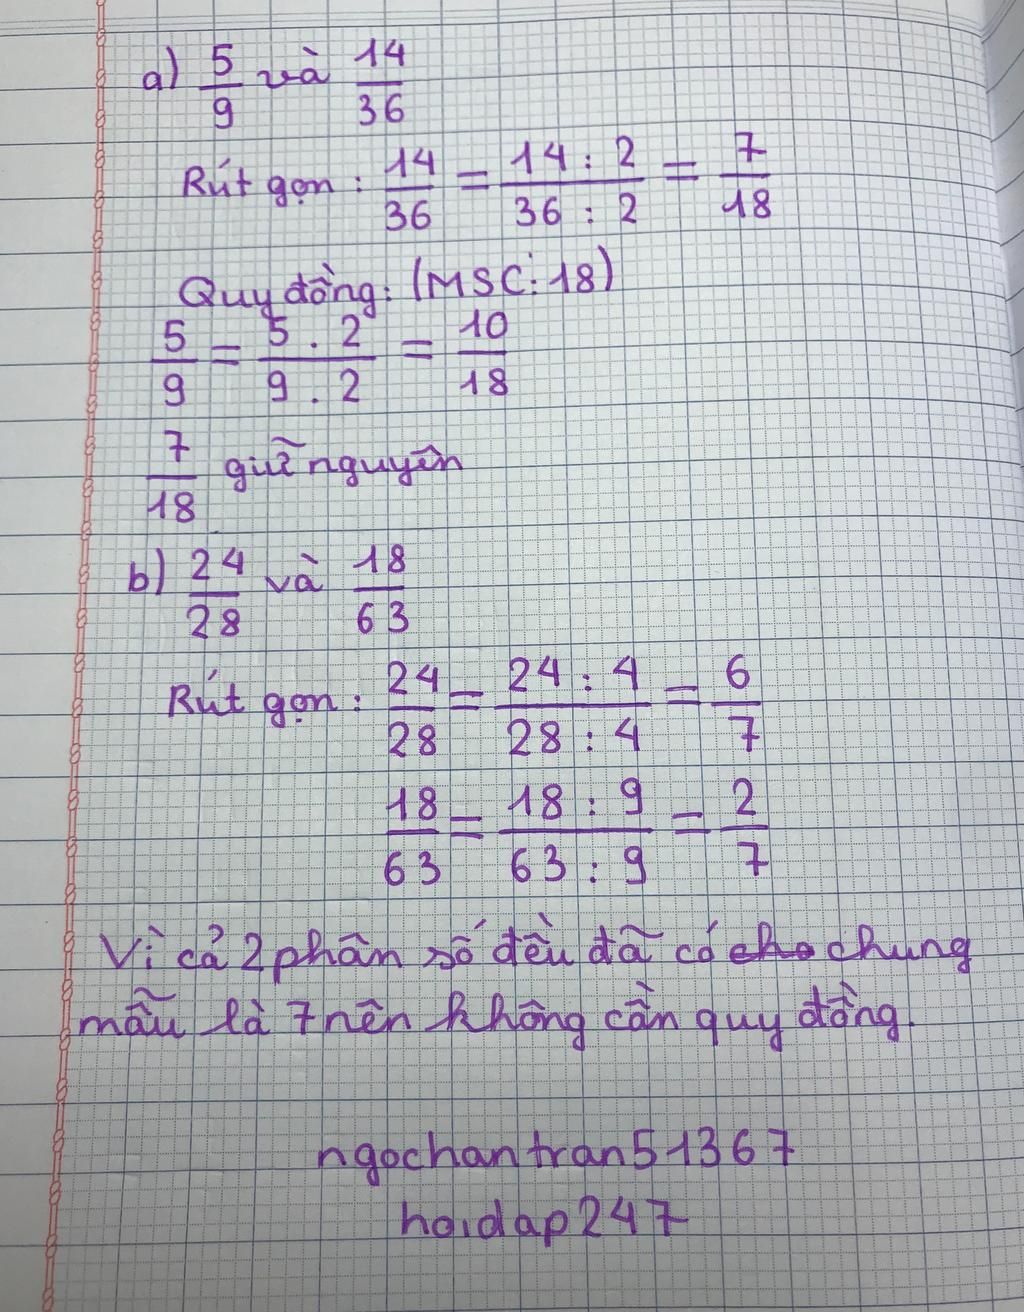 a) 5/9 và 14/36
Rút gọn: 14/36 = 14 : 2 / 36 : 2 = 7/18
Quy đồng: (MSC: 18)
5/9 = 5 . 2 / 9 . 2 = 10/18
7/18 giữ nguyên
b) 24/28 và 18/63
Rút gọn: 24/28 = 24 : 4 / 28 : 4 = 6/7
18/63 = 18 : 9 / 63 : 9 = 2/7
Vì cả 2 phân số đều đã có cho chung
mẫu là 7 nên không cần quy đồng.
ngochantran51367
hoidap247